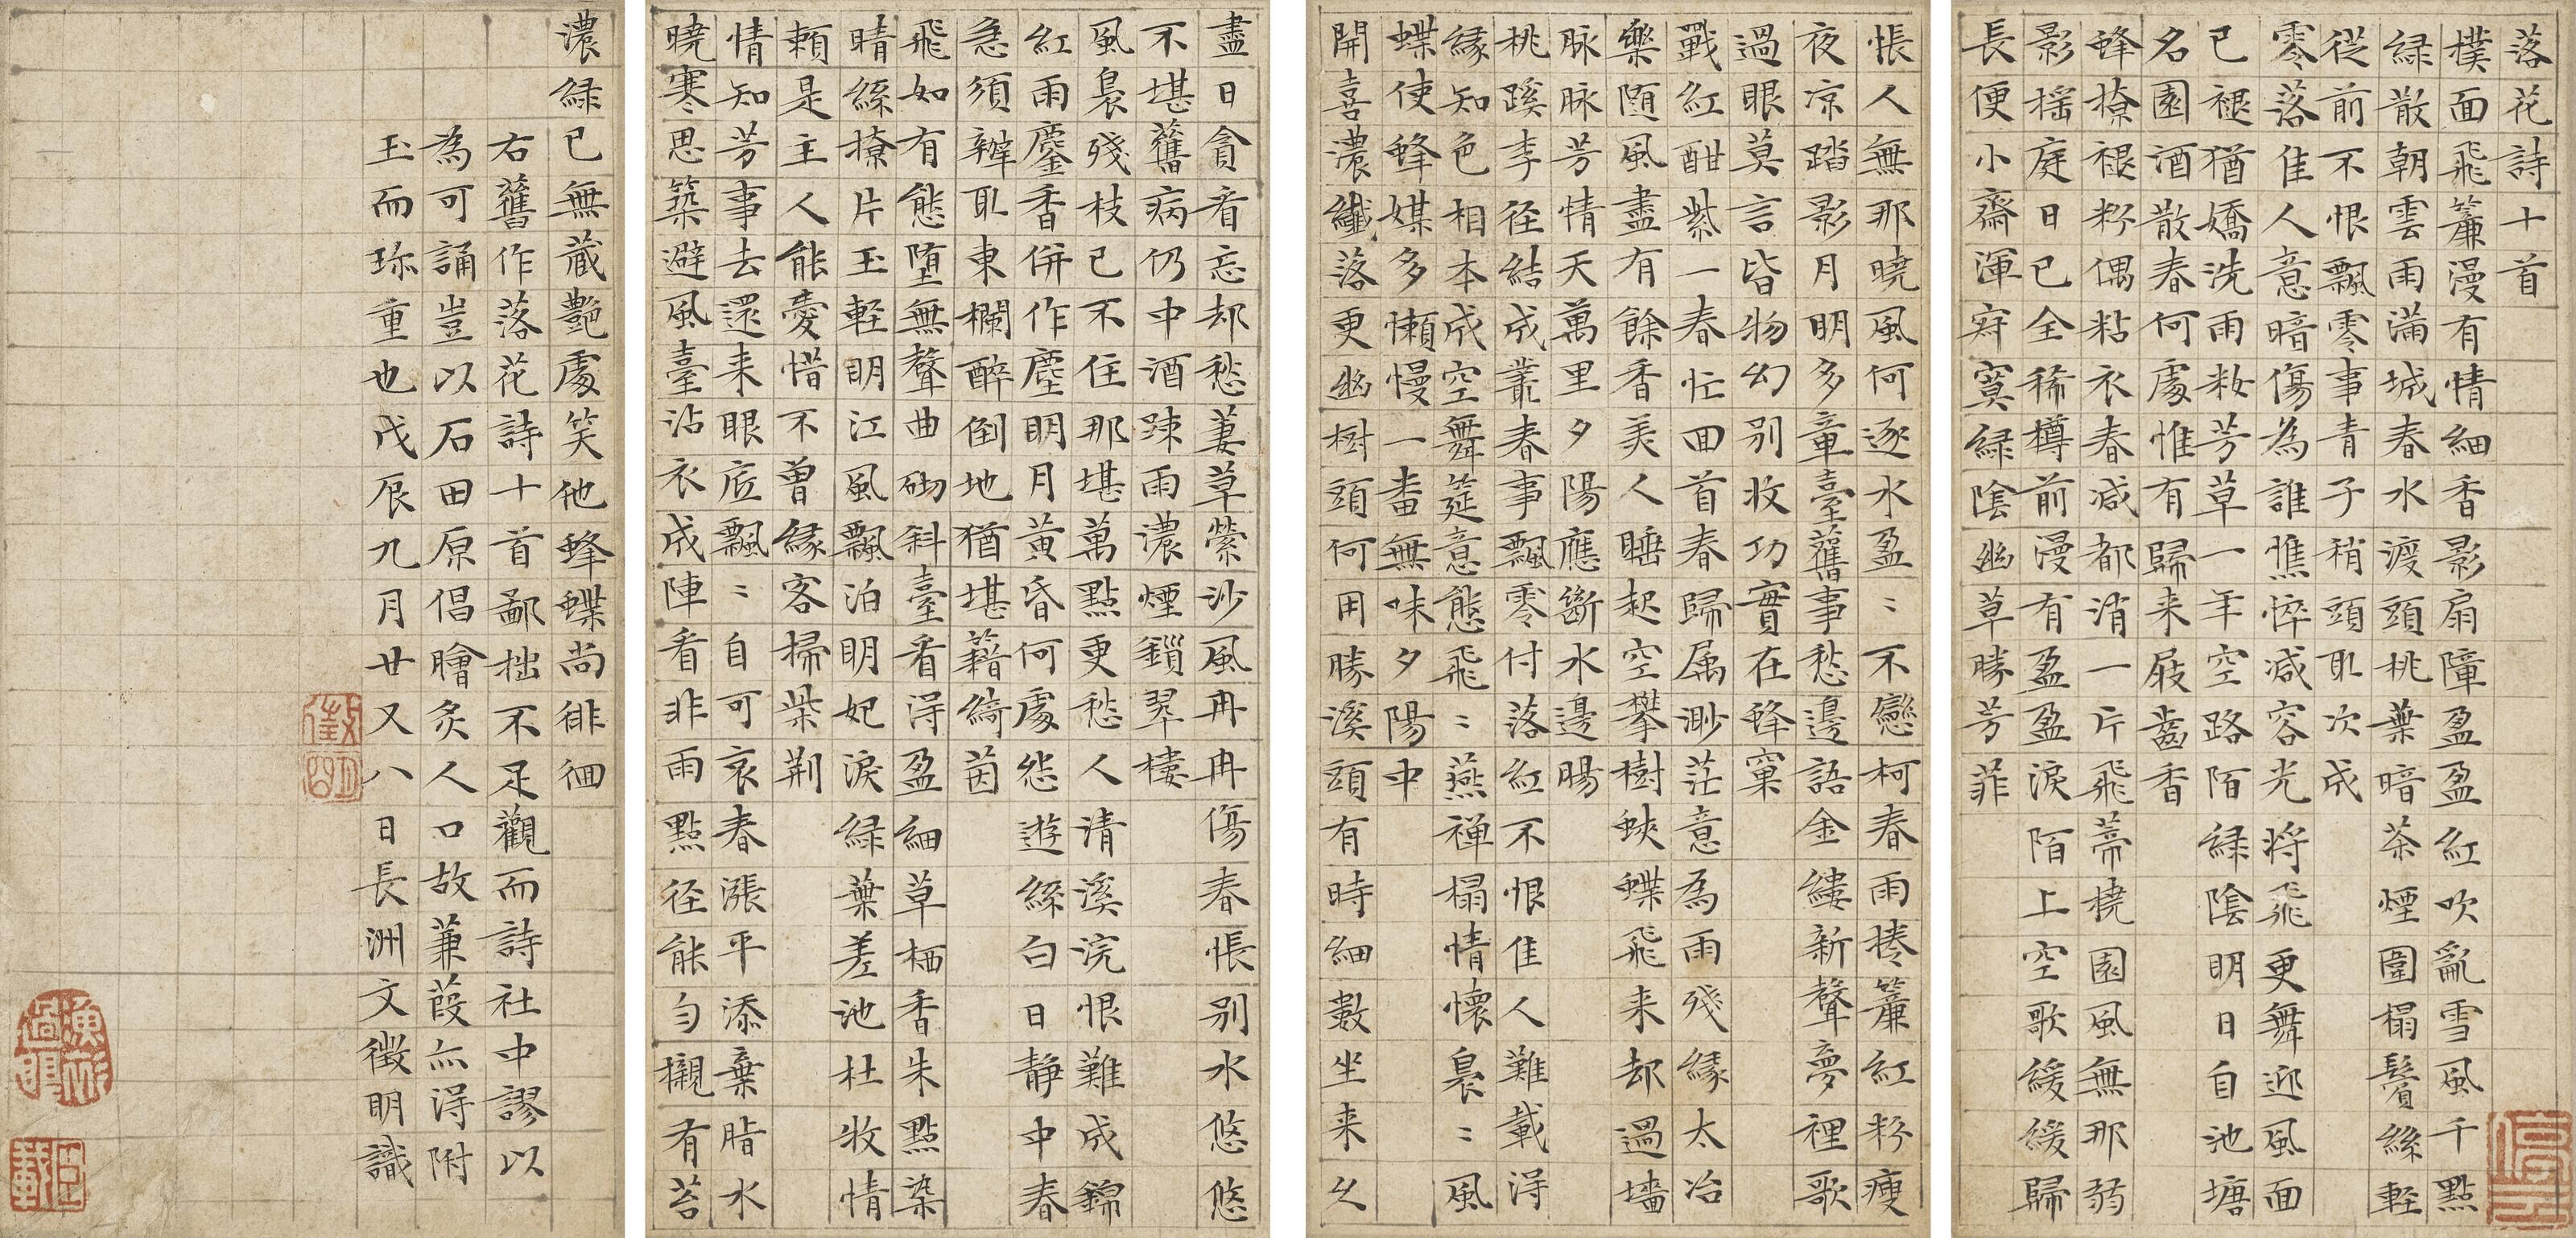 落花詩十首
撲面飛簾漫有情細香影扇障盈盈紅吹亂雪風千點
綠散朝雲雨滿城春水渡頭桃葉暗茶煙圍榻鬢絲輕
從前不恨飄零事青子稍頭取次成
零落佳人意暗傷為誰憔悴減容光將飛更舞迎風面
已褪猶嬌洗雨妝芳草一年空路陌綠陰明日自池塘
名園酒散春何處惟有歸来屐齒香
蜂撩褪粉偶粘衣春减都消一片飛蒂撓園風無那弱
影搖庭日已全稀樽前漫有盈盈淚陌上空歌緩緩歸
長便小齋渾寂寞綠陰幽草勝芳菲
悵人無那曉風何逐水盈〻不戀柯春雨捲簾紅粉瘦
夜凉踏影月明多章臺舊事愁邊語金縷新聲夢裡歌
過眼莫言皆物幻別收功實在蜂窠
戰紅酣紫一春忙回首春歸属渺茫意為雨殘緣太冶
樂随風盡有餘香美人睡起空攀樹蛺蝶飛来却過墻
脉脉芳情天萬里夕陽應斷水邊腸
桃蹊李径結成叢春事飄零付落紅不恨佳人難載得
緣知色相本成空舞筵意態飛〻燕禅榻情懷裊〻風
蝶使蜂媒多懶慢一番無味夕陽中
開喜濃纎落更幽樹頭何用勝溪頭有時細數坐来久
盡日貪看忘却愁萋草縈沙風冉冉傷春悵別水悠悠
不堪舊病仍中酒踈雨濃煙鎖翠樓
風裊殘枝已不住那堪萬點更愁人清溪浣恨難成錦
紅雨鏖香併作塵明月黃昏何處怨遊絲白日靜中春
急須辦取東欄醉倒地猶堪藉綺茵
飛如有態堕無聲曲砌斜臺看得盈細草栖香朱點染
晴絲撩片玉輕明江風飄泊明妃淚綠葉差池杜牧情
頼是主人能愛惜不曾緣客掃柴荆
情知芳事去還来眼底飄〻自可哀春漲平添棄脂水
曉寒思築避風臺沾衣成陣看非雨點径能勻襯有苔
濃綠已無藏艷處笑他蜂蝶尚徘徊
右舊作落花詩十首鄙拙不足觀而詩社中謬以
為可誦豈以石田原倡膾炙人口故蒹葭亦得附
玉而珍重也戊辰九月廿又八日長洲文徵明識